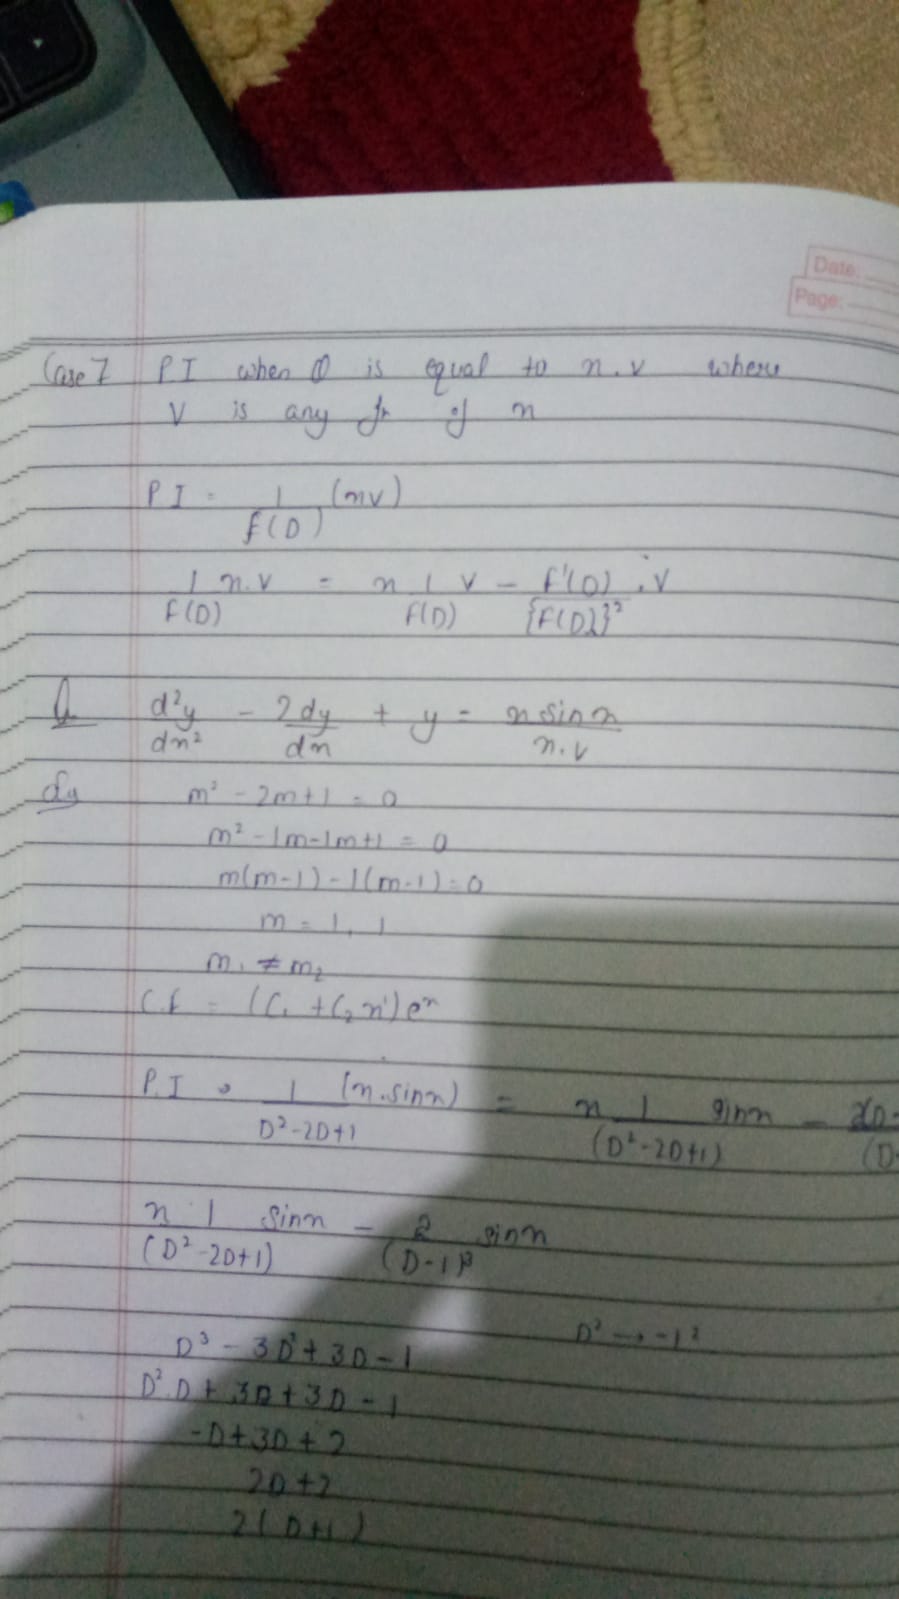 Date:
Page:
Case 7 PI when Q is equal to x.v where
V is any fn of x
PI = 1/F(D) (xv)
1/F(D) x.v = x 1/F(D) v - F'(D)/{F(D)}² .v
Q d²y/dx² - 2dy/dx + y = x sinx
x.v
m² - 2m+1 = 0
m² -1m-1m+1 = 0
m(m-1) -1(m-1)=0
m = 1, 1
m₁ ≠ m₂
C.f = (C₁ + C₂x)eˣ
P.I = 1/(D²-2D+1) (x.sinx) = x 1/(D²-2D+1) sinx -
x 1/(D²-2D+1) sinx - 2/(D-1)³ sinx
D³ - 3D² + 3D - 1 D² → -1²
-D+3D+2
2D+2
2(D+1)